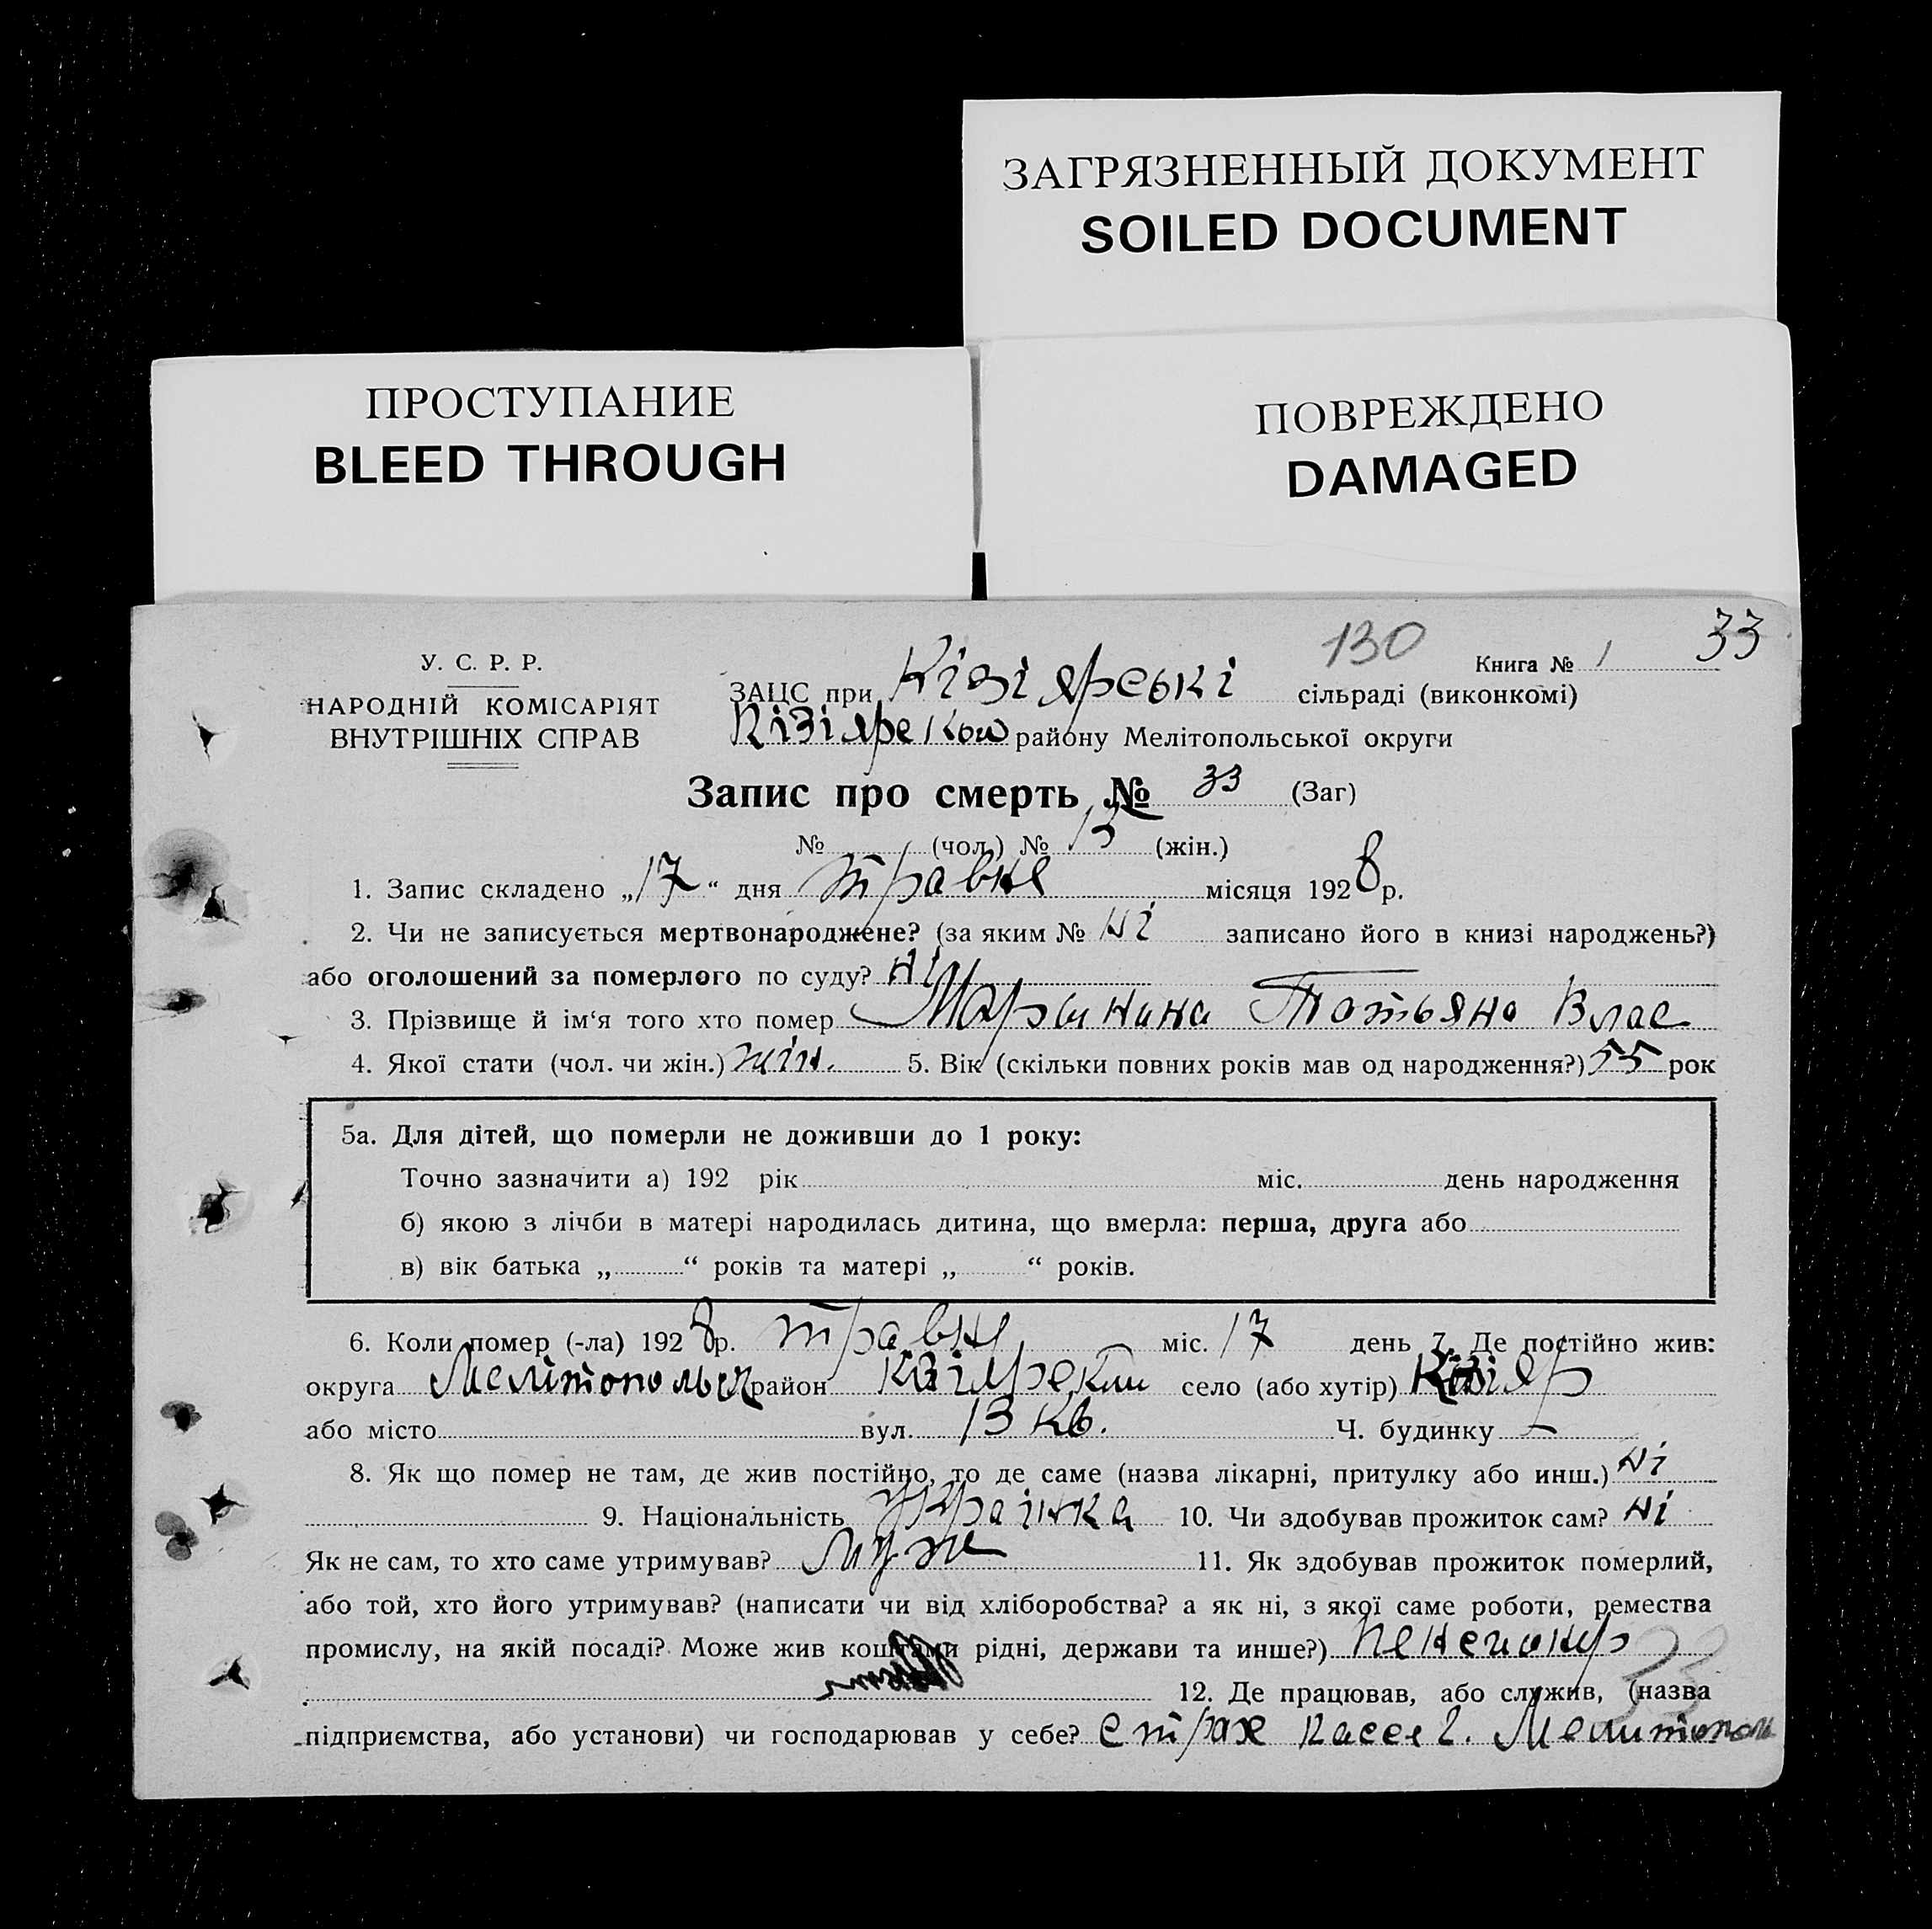 ЗАГРЯЗНЕННЫЙ ДОКУМЕНТ
SOILED DOCUMENT
ПРОСТУПАНИЕ
BLEED THROUGH
ПОВРЕЖДЕНО
DAMAGED
130
33
У. С. Р. Р.
НАРОДНІЙ КОМІСАРІЯТ
ВНУТРІШНІХ СПРАВ
Книга № 1
ЗАЦС при Кізіярські сільраді (виконкомі)
району Мелітопольської округи
Запис про смерть № 33 (Заг)
№ (чол.) № 13 (жін.)
1. Запис складено „17“ дня травня місяця 1928 р.
2. Чи не записується мертвонароджене? (за яким № Ні записано його в книзі народжень?)
або оголошений за померлого по суду? Ні
3. Прізвище й ім‘я того хто помер Марынина Татьяна Влас
4. Якої стати (чол. чи жін.) жін. 5. Вік (скільки повних років мав од народження?) 55 рок
5а. Для дітей, що померли не доживши до 1 року:
Точно зазначити а) 192 рік міс. день народження
б) якою з лічби в матері народилась дитина, що вмерла: перша, друга або
в) вік батька „ “ років та матері „ “ років.
6. Коли помер (-ла) 1928 р. травня міс. 17 день 7. Де постійно жив:
округа Мелітопольск район село (або хутір) Кізіяр
або місто вул. 13 кв. Ч. будинку —
8. Як що помер не там, де жив постійно, то де саме (назва лікарні, притулку або инш.) Ні
9. Національність Українка 10. Чи здобував прожиток сам? Ні
Як не сам, то хто саме утримував? Муж 11. Як здобував прожиток померлий,
або той, хто його утримував? (написати чи від хліборобства? а як ні, з якої саме роботи, ремества
промислу, на якій посаді? Може жив коштами рідні, держави та инше?) Пенсионер
33
12. Де працював, або служив, (назва
підприємства, або установи) чи господарював у себе? Страх касся г. Мелитополь